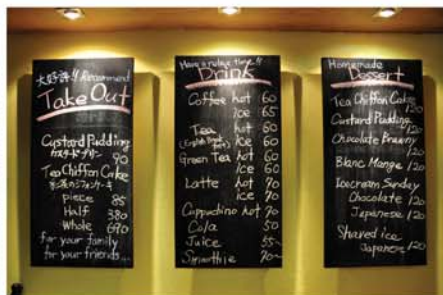 大好評!! Recommend
Take Out
Custard Pudding
カスタードプリン
90
Tea Chiffon Cake
紅茶のシフォンケーキ
piece 85
Half 380
Whole 690
for your family
for your friends...
Have a relax time!!
Drink
Coffee hot 60
ice 65
Tea hot 60
ice 60
Green Tea hot 60
ice 60
Latte hot 70
ice 70
Cappuchino hot 70
Cola 50
Juice 55~
Smoothie 70~
Homemade
Dessert
Tea Chiffon Cake
120
Custard Pudding
120
Chocolate Brawny
120
Blanc Mange 120
Icecream Sunday
Chocolate 120
Japanese 120
Shaved ice
Japanese 120